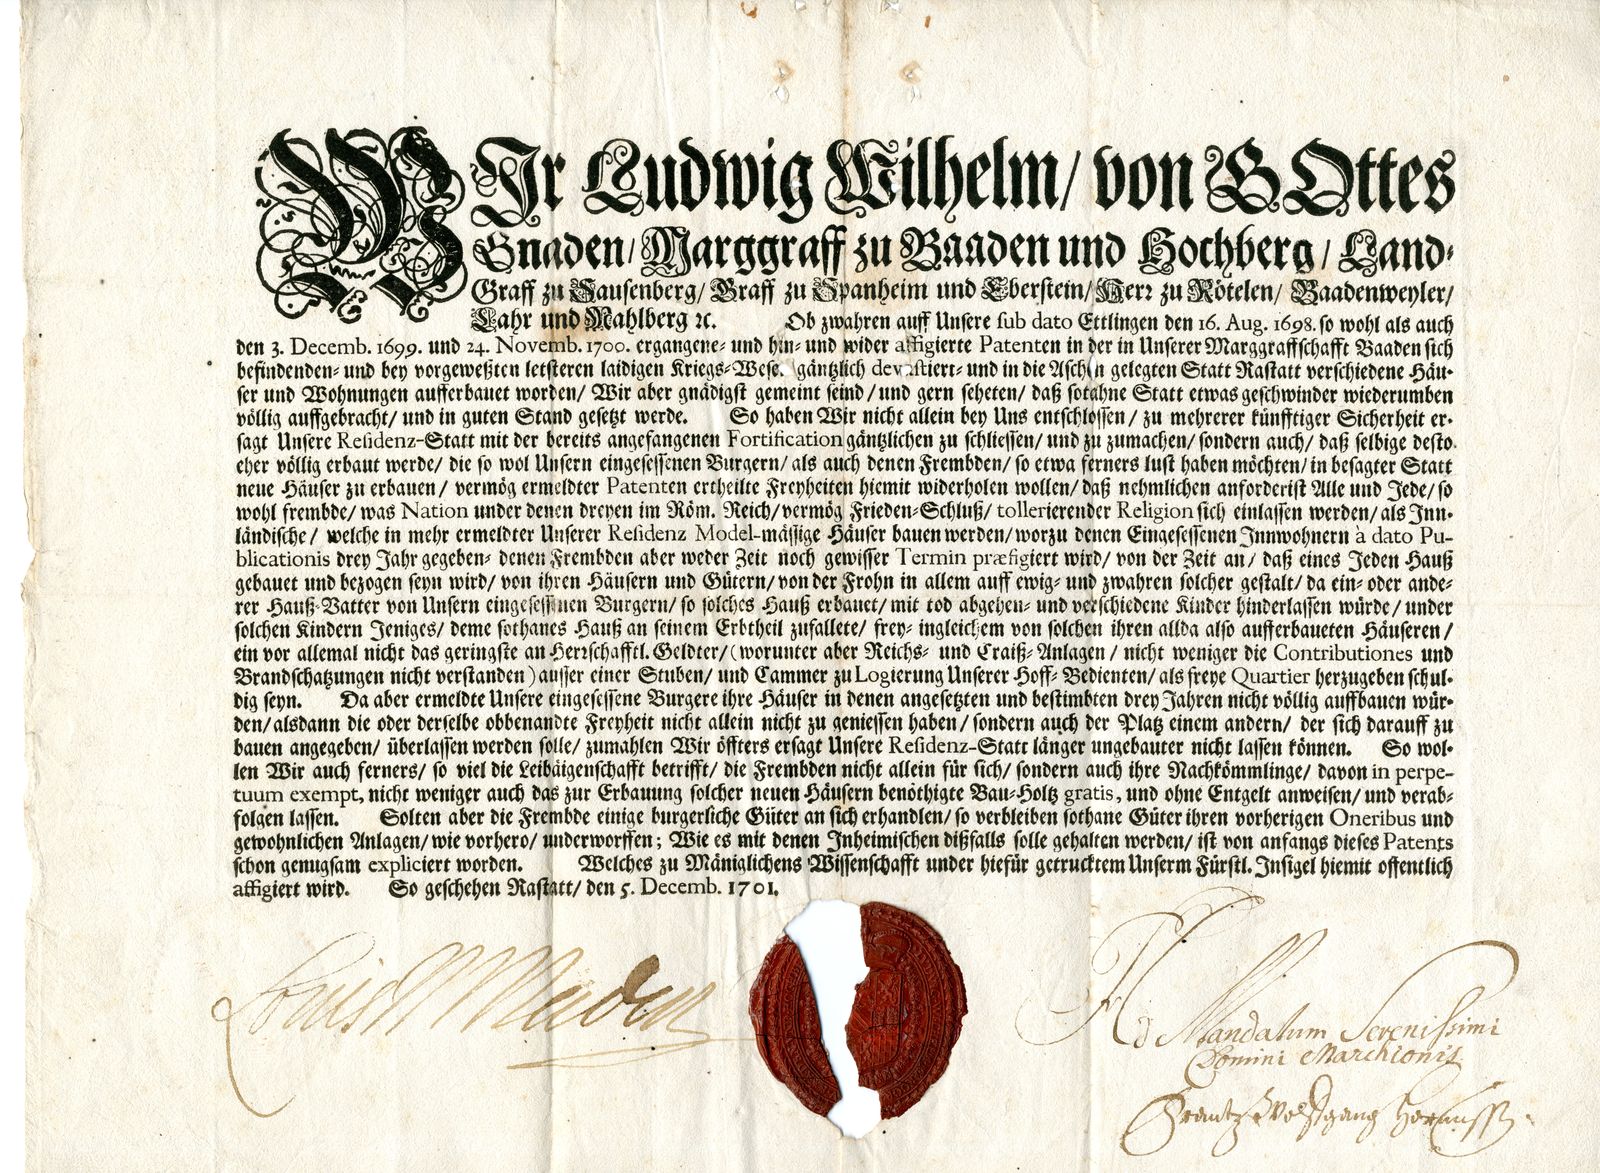 WIr Ludwig Wilhelm/ von GOttes
Gnaden/ Marggraff zu Baaden und Hochberg/ Land-
Graff zu Sausenberg/ Graff zu Spanheim und Eberstein/ Herr zu Rötelen/ Baadenweyler/
Lahr und Mahlberg ꝛc. Ob zwahren auff Unsere sub dato Ettlingen den 16. Aug. 1698. so wohl als auch
den 3. Decemb. 1699. und 24. Novemb. 1700. ergangene- und hin- und wider affigierte Patenten in der in Unserer Marggraffschafft Baaden sich
befindenden- und bey vorgeweßten letsteren laidigen Kriegs-Wesen gäntzlich devastiert- und in die Aschen gelegten Statt Rastatt verschiedene Häu-
ser und Wohnungen aufferbauet worden/ Wir aber gnädigst gemeint seind/ und gern seheten/ daß sothane Statt etwas geschwinder wiederumben
völlig auffgebracht/ und in guten Stand gesetzt werde. So haben Wir nicht allein bey Uns entschlossen/ zu mehrerer künfftiger Sicherheit er-
sagt Unsere Residenz-Statt mit der bereits angefangenen Fortification gäntzlichen zu schliessen/ und zu zumachen/ sondern auch/ daß selbige desto
eher völlig erbaut werde/ die so wol Unsern eingesessenen Burgern/ als auch denen Frembden/ so etwa ferners lust haben möchten/ in besagter Statt
neue Häuser zu erbauen/ vermög ermeldter Patenten ertheilte Freyheiten hiemit widerholen wollen/ daß nehmlichen anforderist Alle und Jede/ so
wohl frembde/ was Nation under denen dreyen im Röm. Reich/ vermög Frieden-Schluß/ tollerierender Religion sich einlassen werden/ als Inn-
ländische/ welche in mehr ermeldter Unserer Residenz Model-mässige Häuser bauen werden/ worzu denen Eingesessenen Innwohnern à dato Pu-
blicationis drey Jahr gegeben- denen Frembden aber weder Zeit noch gewisser Termin præfigiert wird/ von der Zeit an/ daß eines Jeden Hauß
gebauet und bezogen seyn wird/ von ihren Häusern und Gütern/ von der Frohn in allem auff ewig- und zwahren solcher gestalt/ da ein- oder ande-
rer Hauß-Vatter von Unsern eingesessenen Burgern/ so solches Hauß erbauet/ mit tod abgehen- und verschiedene Kinder hinderlassen würde/ under
solchen Kindern Jeniges/ deme sothanes Hauß an seinem Erbtheil zufallete/ frey- ingleichem von solchen ihren allda also aufferbaueten Häuseren/
ein vor allemal nicht das geringste an Herrschafftl. Geldter/ (worunter aber Reichs- und Craiß-Anlagen/ nicht weniger die Contributiones und
Brandschatzungen nicht verstanden) ausser einer Stuben/ und Cammer zu Logierung Unserer Hoff-Bedienten/ als freye Quartier herzugeben schul-
dig seyn. Da aber ermeldte Unsere eingesessene Burgere ihre Häuser in denen angesetzten und bestimbten drey Jahren nicht völlig auffbauen wür-
den/ alsdann die oder derselbe obbenandte Freyheit nicht allein nicht zu geniessen haben/ sondern auch der Platz einem andern/ der sich darauff zu
bauen angegeben/ überlassen werden solle/ zumahlen Wir öffters ersagt Unsere Residenz-Statt länger ungebauter nicht lassen können. So wol-
len Wir auch ferners/ so viel die Leibäigenschafft betrifft/ die Frembden nicht allein für sich/ sondern auch ihre Nachkömmlinge/ davon in perpe-
tuum exempt, nicht weniger auch das zur Erbauung solcher neuen Häusern benöthigte Bau-Holtz gratis, und ohne Entgelt anweisen/ und verab-
folgen lassen. Solten aber die Frembde einige burgerliche Güter an sich erhandlen/ so verbleiben sothane Güter ihren vorherigen Oneribus und
gewohnlichen Anlagen/ wie vorhero/ underworffen; Wie es mit denen Inheimischen dißfalls solle gehalten werden/ ist von anfangs dieses Patents
schon genugsam expliciert worden. Welches zu Mäniglichens Wissenschafft under hiefür getrucktem Unserm Fürstl. Insigel hiemit offentlich
affigiert wird. So geschehen Rastatt/ den 5. Decemb. 1701.
Louis
Ad Mandatum Serenissimi
Domini Marchionis
Frantz Wolffgang